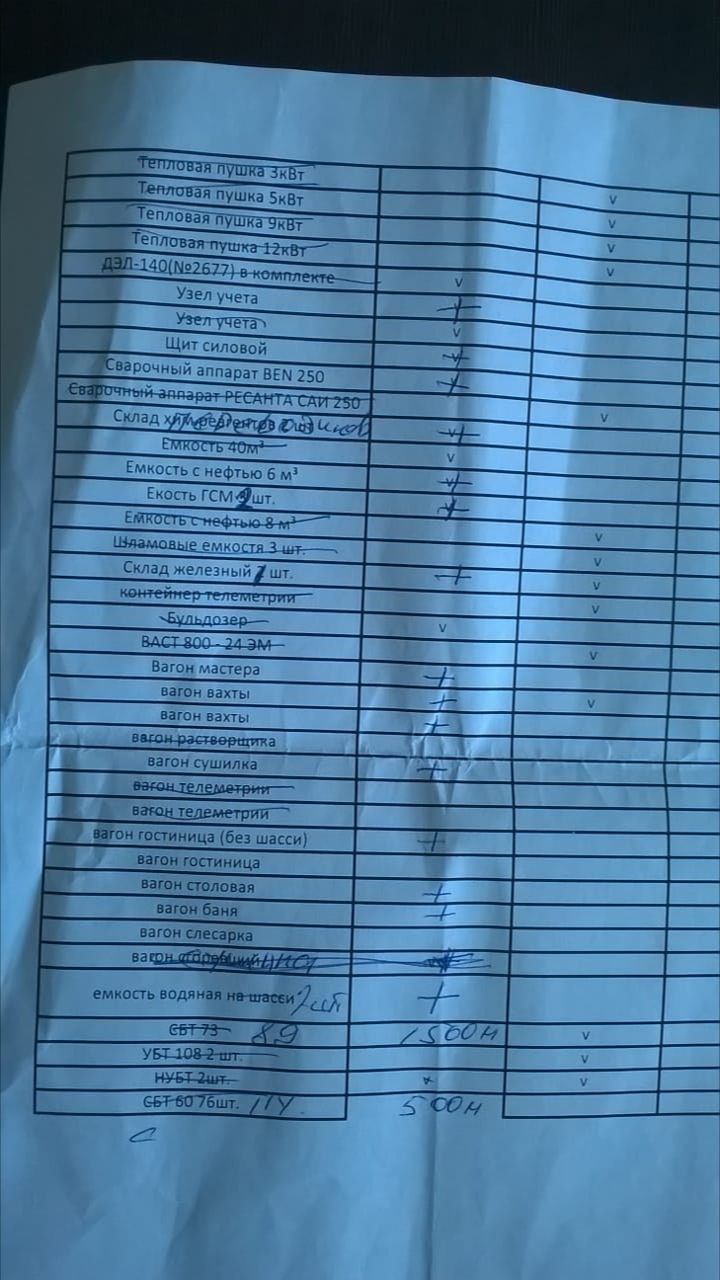 Тепловая пушка 3кВт
Тепловая пушка 5кВт v
Тепловая пушка 9кВт v
Тепловая пушка 12кВт v
ДЭЛ-140(№2677) в комплекте v
Узел учета v
Узел учета v
Щит силовой v
Сварочный аппарат BEN 250 v
Сварочный аппарат РЕСАНТА САИ 250
Склад v
Емкость 40м³ v
Емкость с нефтью 6 м³ v
Екость ГСМ 2 шт. v
Емкость с нефтью 8 м³ v
Шламовые емкостя 3 шт. v
Склад железный 1 шт. + v
контейнер телеметрии v
Бульдозер v
ВАСТ 800 - 24 ЭМ v
Вагон мастера +
вагон вахты + v
вагон вахты +
вагон растворщика
вагон сушилка +
вагон телеметрии
вагон телеметрии
вагон гостиница (без шасси) +
вагон гостиница
вагон столовая +
вагон баня +
вагон слесарка
вагон
емкость водяная на шасси 2шт +
СБТ 73 89 1500м v
УБТ 108 2 шт. v
НУБТ 2шт. v
СБТ 60 76шт. 114 500м
с